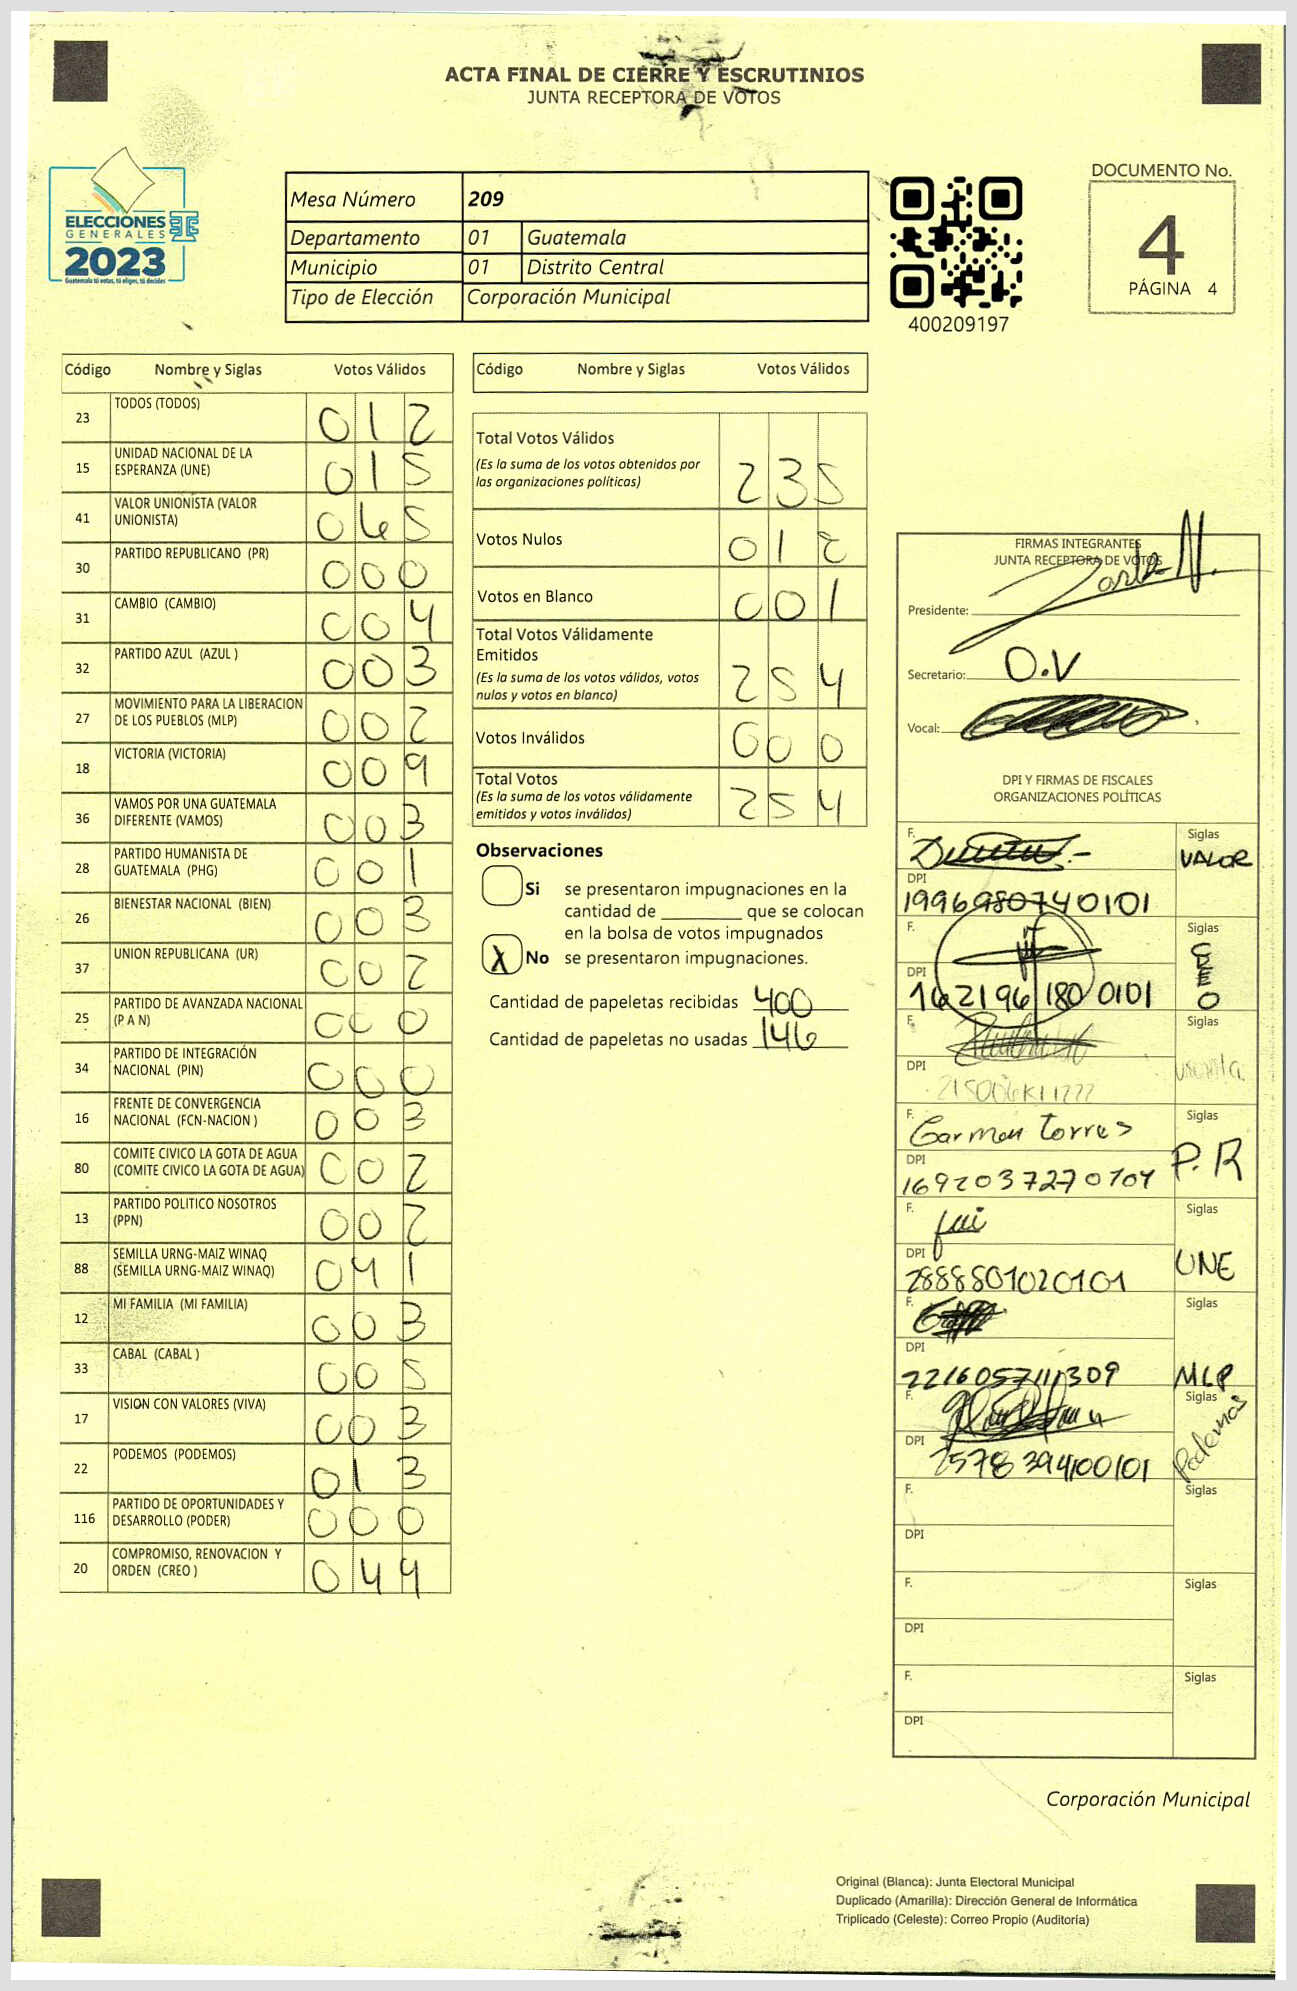 ACTA FINAL DE CIERRE Y ESCRUTINIOS
JUNTA RECEPTORA DE VOTOS
ELECCIONES
GENERALES
2023
Guatemala tú votas, tú eliges, tú decides
Mesa Número 209
Departamento 01 Guatemala
Municipio 01 Distrito Central
Tipo de Elección Corporación Municipal
400209197
DOCUMENTO No.
4
PÁGINA 4
Código Nombre y Siglas Votos Válidos
23 TODOS (TODOS) 012
15 UNIDAD NACIONAL DE LA ESPERANZA (UNE) 015
41 VALOR UNIONISTA (VALOR UNIONISTA) 065
30 PARTIDO REPUBLICANO (PR) 000
31 CAMBIO (CAMBIO) 004
32 PARTIDO AZUL (AZUL ) 003
27 MOVIMIENTO PARA LA LIBERACION DE LOS PUEBLOS (MLP) 002
18 VICTORIA (VICTORIA) 009
36 VAMOS POR UNA GUATEMALA DIFERENTE (VAMOS) 003
28 PARTIDO HUMANISTA DE GUATEMALA (PHG) 001
26 BIENESTAR NACIONAL (BIEN) 003
37 UNION REPUBLICANA (UR) 002
25 PARTIDO DE AVANZADA NACIONAL (P A N) 000
34 PARTIDO DE INTEGRACIÓN NACIONAL (PIN) 000
16 FRENTE DE CONVERGENCIA NACIONAL (FCN-NACION ) 003
80 COMITE CIVICO LA GOTA DE AGUA (COMITE CIVICO LA GOTA DE AGUA) 002
13 PARTIDO POLITICO NOSOTROS (PPN) 002
88 SEMILLA URNG-MAIZ WINAQ (SEMILLA URNG-MAIZ WINAQ) 041
12 MI FAMILIA (MI FAMILIA) 003
33 CABAL (CABAL ) 005
17 VISION CON VALORES (VIVA) 003
22 PODEMOS (PODEMOS) 013
116 PARTIDO DE OPORTUNIDADES Y DESARROLLO (PODER) 000
20 COMPROMISO, RENOVACION Y ORDEN (CREO ) 044
Código Nombre y Siglas Votos Válidos
Total Votos Válidos 235
(Es la suma de los votos obtenidos por
las organizaciones políticas)
Votos Nulos 018
Votos en Blanco 001
Total Votos Válidamente
Emitidos 254
(Es la suma de los votos válidos, votos
nulos y votos en blanco)
Votos Inválidos 000
Total Votos 254
(Es la suma de los votos válidamente
emitidos y votos inválidos)
Observaciones
Si se presentaron impugnaciones en la
cantidad de ________ que se colocan
en la bolsa de votos impugnados
X No se presentaron impugnaciones.
Cantidad de papeletas recibidas 400
Cantidad de papeletas no usadas 146
FIRMAS INTEGRANTES
JUNTA RECEPTORA DE VOTOS
Presidente:
Secretario: O.V
Vocal:
DPI Y FIRMAS DE FISCALES
ORGANIZACIONES POLÍTICAS
F. Siglas VALOR
DPI 1996980740101
F. Siglas CREO
DPI 1621961800101
F. Siglas
DPI
F. Carmen Torres Siglas P.R
DPI 1692037270104
F. Siglas UNE
DPI 2888801020101
F. Siglas MLP
DPI 2216057111309
F. Siglas Podemos
DPI 2578394100101
F. Siglas
DPI
F. Siglas
DPI
F. Siglas
DPI
Corporación Municipal
Original (Blanca): Junta Electoral Municipal
Duplicado (Amarilla): Dirección General de Informática
Triplicado (Celeste): Correo Propio (Auditoría)